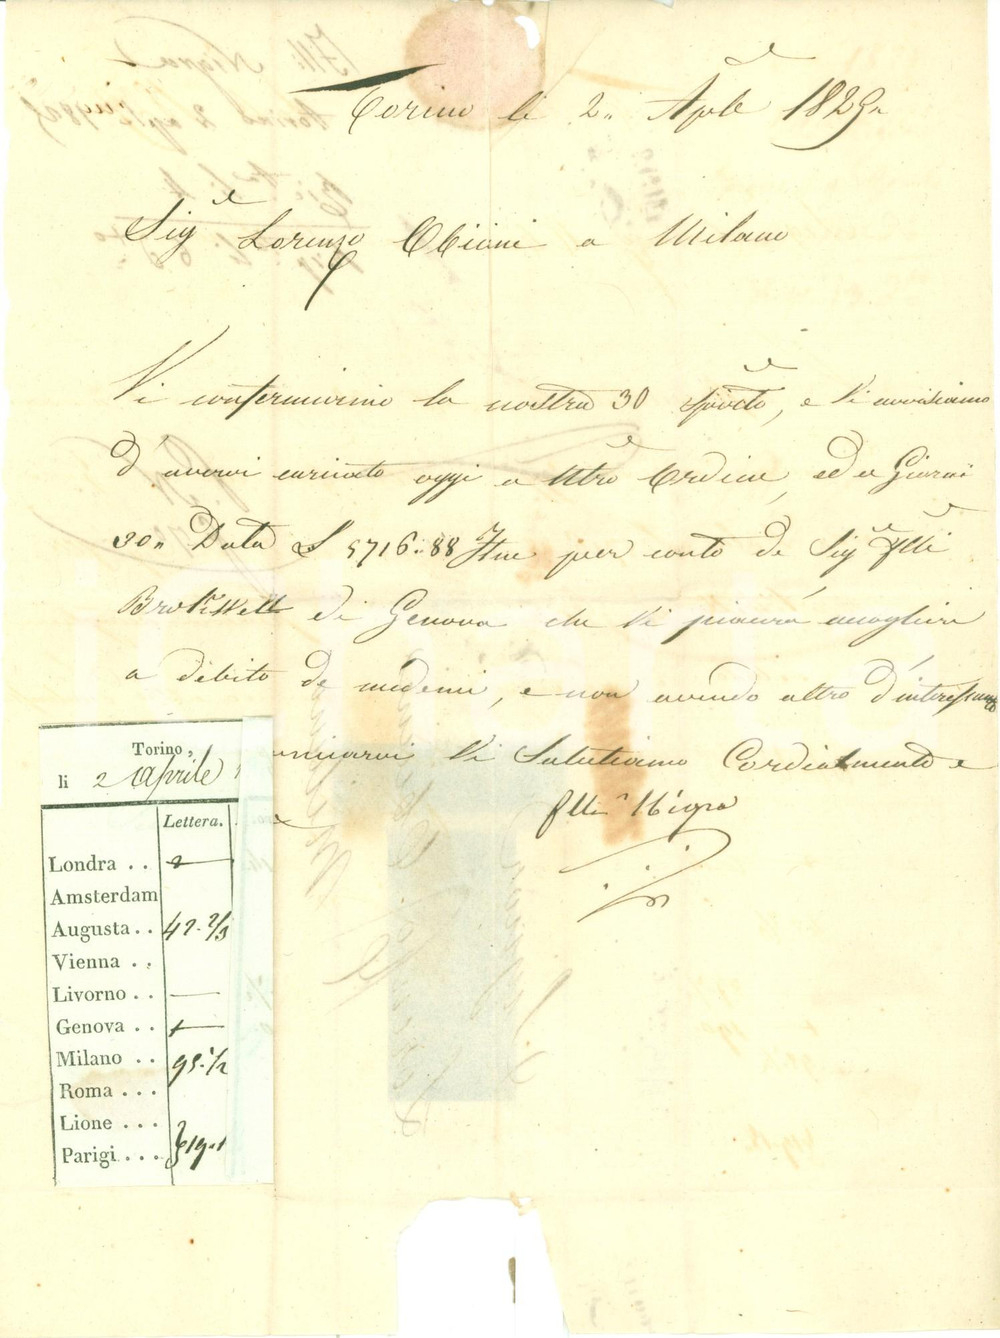 Torino li 2„ Aprle 1825„
Sigr Lorenzo Obicini a Milano
Vi confermiamo la nostra 30 spirato, e Vi avvisiamo
d'avervi caricato oggi a Vtro Ordine, ed a Giorni
30„ Data £ 5716„88 Itne per conto de Sigri Flli
di Genova che Vi piacerà accogliere
a debito de medemi, e non avendo altro d'interessante
Vi Salutiamo Cordialmente
flli Nigra
Torino,
li 2 Aprile
Lettera.
Londra . .
Amsterdam
Augusta . . 42. 2/3
Vienna . .
Livorno . . —
Genova . .
Milano . . 95. 1/2
Roma . . .
Lione . . .
Parigi . . .